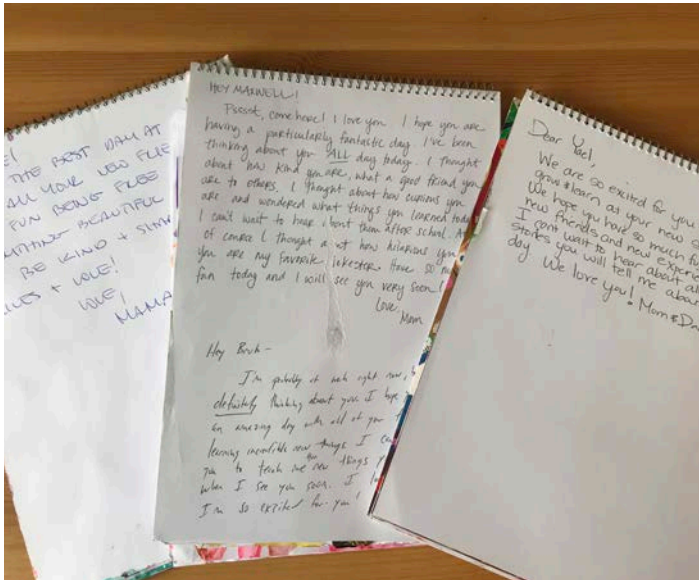 THE BEST DAY AT
ALL YOUR NEW
FUN BEING FREE
BEAUTIFUL
BE KIND +
+ LOVE!
LOVE!
MAMA
HEY MAXWELL!
Psssst, come here! I love you. I hope you are
having a particularly fantastic day. I've been
thinking about you ALL day today. I thought
about how kind you are, what a good friend you
are to others. I thought about how curious you
are and wondered what things you learned today
I can't wait to hear about them after school. And
of course I thought about how hilarious you
you are my favorite jokester. Have so much
fun today and I will see you very soon!
Love,
Mom
Hey
I'm probably at work right now,
definitely thinking about you. I hope
an amazing day with all of your
learning incredible new things. I can
you to teach me the new things
when I see you soon. I
I'm so excited for you!
Dear Yael,
We are so excited for you
grow & learn as your new
We hope you have so much fun
new friends and new
I can't wait to hear about all
stories you will tell me about
day. We love you! Mom &